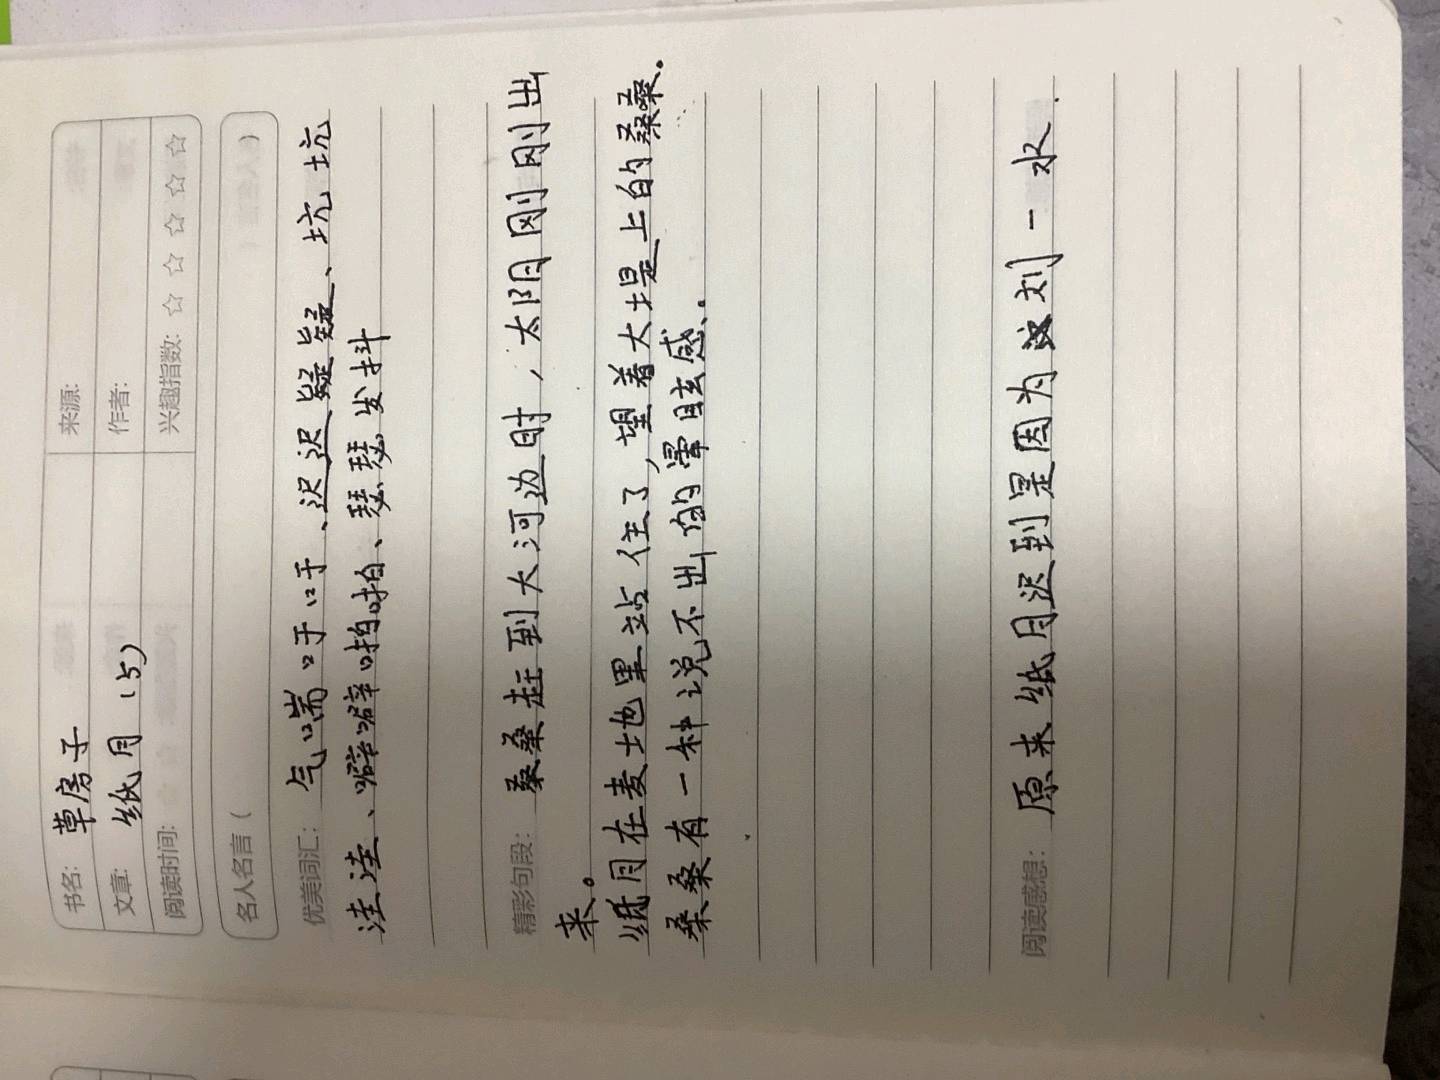 书名: 草房子 来源:
文章: 纸月(5) 作者:
阅读时间: 兴趣指数: ☆ ☆ ☆ ☆ ☆
名人名言 ( )
优美词汇: 气喘吁吁、迟迟疑疑、坑坑
洼洼、噼噼啪啪、瑟瑟发抖
精彩句段: 桑桑赶到大河边时，太阳刚刚出
来。
纸月在麦地里站住了，望着大堤上的桑桑.
桑桑有一种说不出的晕眩感.
阅读感想: 原来纸月迟到是因为刘一水.